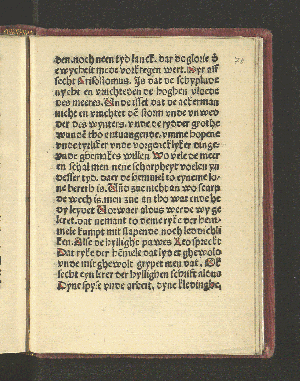 den. noch neen tyd lanck. dar de glorie d
e wycheit mede vorkregen wert. Wyr aff
secht Crisostomus. Is dat de schyplude
nycht en vruchteden de hoghen vloede
des meeres. Unde isset dat de ackerman
nicht en vruchtet den storm unde unwed
der des wynters. unde de rydder grothe
wunde tho entfangende. umme hopene
unde tytliker unde vorgencklyker dinge
unde ghemakes willen Wo vele de meer
en schal men nene scharpheyt voelen tu
desser tyd. dar de hemmel to eyneme lo
ne bereid is. Und sue nicht an wo scarp
de wech is. men sue an tho war ende he
dy leydet Vorwaer aldus werde wy ge
leret. dat nemant to deme ryke der hem
mele kumpt mit slapende noch lediche
ken. Alse de hyllighe pawes Leo sprecket
Dat ryke der hemmele dat lydet ghewold
unde mit ghewolt grypet men dat. Ok
secht eyn lerer der hyllighen schrift aldus
Dyne spyse unde arbeit, dyne kledinghe,